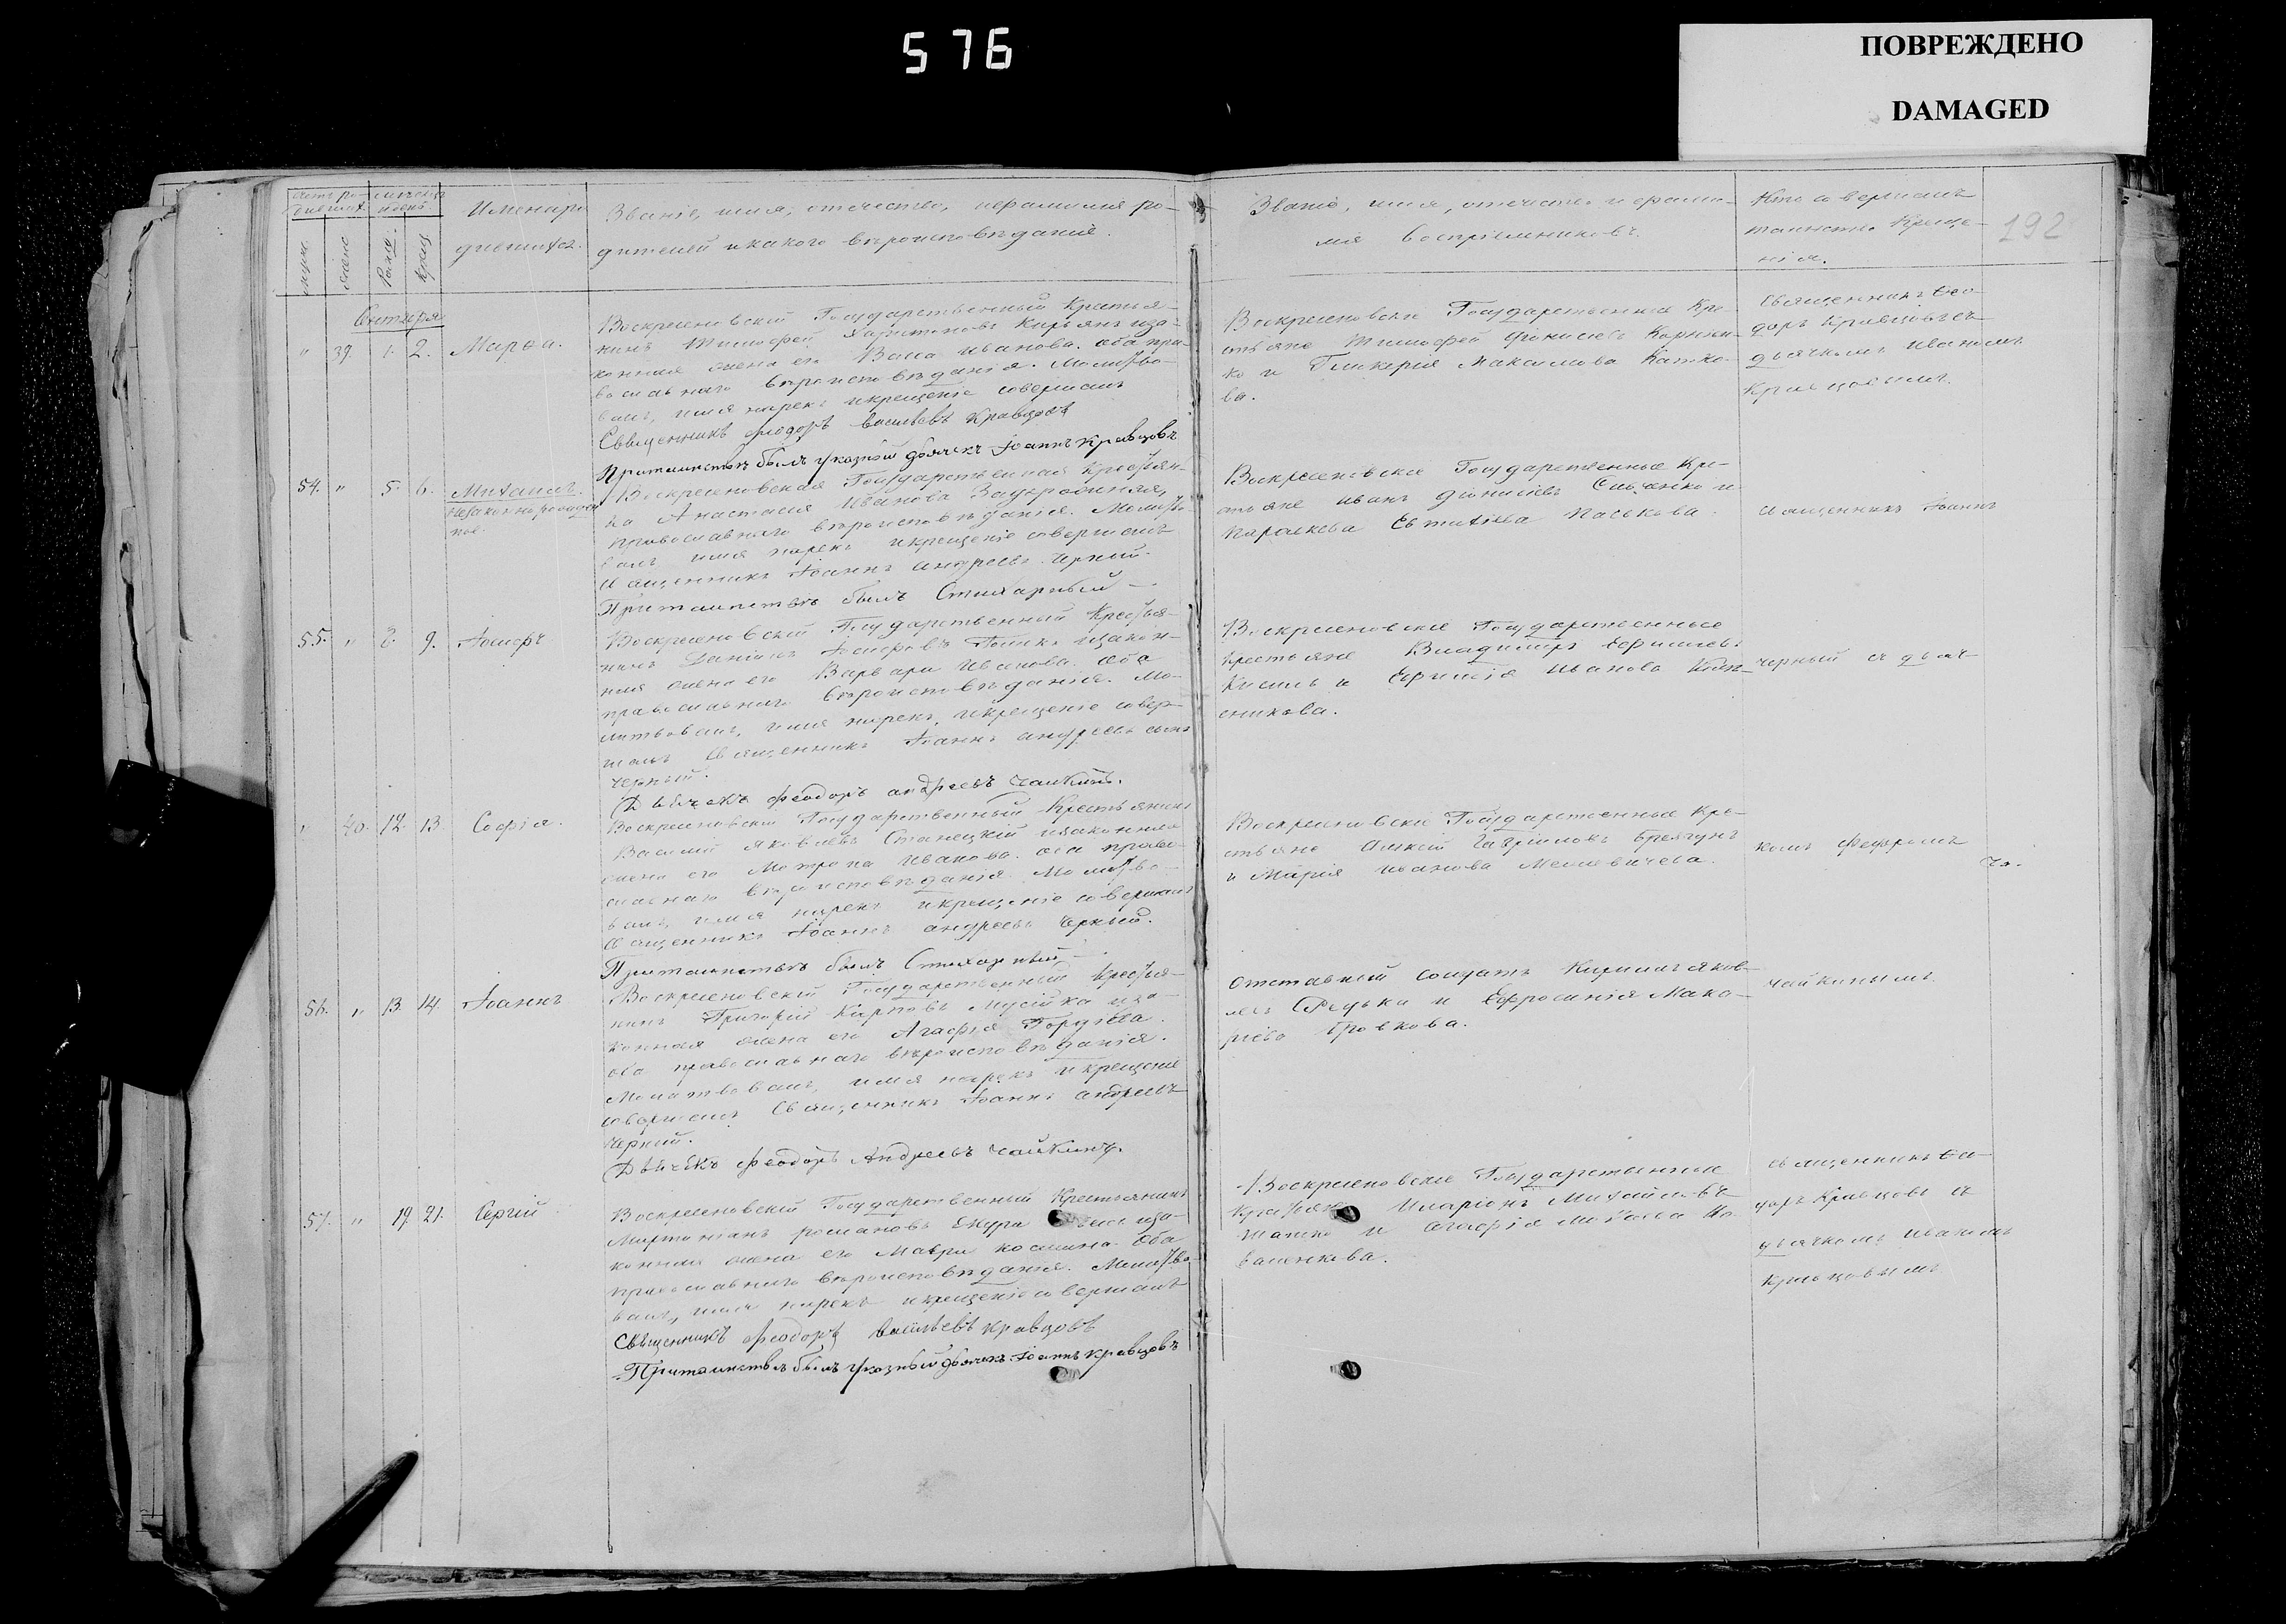 576
ПОВРЕЖДЕНО
DAMAGED
192
Званіе, имя, отечество, и фамилия ро-
дителей и какого вѣроисповѣданія.
Званіе, имя, отечество и фами-
лія воспріемниковъ.
Кто совершалъ
таинство Креще-
нія.
Сентября
" 39. 1. 2. Марѳа.
Воскресеновскій Государственный Крестья-
нинъ Тимофей Харитоновъ и за-
конная жена его Васса Иванова. Оба пра-
вославнаго вѣроисповѣданія. Молитво-
валъ, имя нарекъ и крещеніе совершалъ
Священникъ Феодоръ Васильевъ Кравцовъ
При таинствѣ былъ указной дьячекъ Іоаннъ Кравцовъ
Воскресеновскіе Государственные Кре-
стьяне Тимофей Діонисіевъ Корніен-
ко и Гликерія Максимова Катко-
ва.
Священникъ Ѳео-
доръ Кравцовъ съ
дьячкомъ Иваномъ
Кравцовымъ.
54. " 5. 6. Михаилъ.
незаконнорожден
ное.
Воскресеновская Государственная Крестьян-
ка Анастасия Иванова
православнаго вѣроисповѣданія. Молитво-
валъ имя нарекъ и крещеніе совершалъ
Священникъ Іоаннъ Андреевъ Черный.
При таинствѣ былъ Стихарный
Воскресеновскіе Государственные Кре-
стьяне Иванъ Діонисіевъ и
Параскева Евтихіева Паськова.
Священникъ Іоаннъ
55. " 8. 9. Іосифъ
Воскресеновскій Государственный Крестья-
нинъ Даніилъ Іосифовъ и закон-
ная жена его Варвара Иванова. Оба
православнаго вѣроисповѣданія. Мо-
литвовалъ, имя нарекъ, и крещеніе совер-
шалъ Священникъ Іоаннъ Андреевъ сынъ
Черный.
Дьячекъ Феодоръ Андреевъ Чайкинъ.
Воскресеновскіе Государственные
Крестьяне Владимиръ Ефимовъ
Кисиль и Евфимія Иванова
Черный съ дьяч-
" 40. 12. 13 Софія.
Воскресеновскій Государственный Крестьянинъ
Василий Яковлевъ Станецкій и законная
жена его Матрона Иванова. Оба право-
славнаго вѣроисповѣданія. Молитво-
валъ, имя нарекъ и крещеніе совершалъ
Священникъ Іоаннъ Андреевъ Черный.
При таинствѣ былъ Стихарный
Воскресеновскіе Государственные Кре-
стьяне Алексій Гавріиловъ
и Марія Иванова
комъ Феодоромъ
56. " 13. 14. Іоаннъ
Воскресеновскій Государственный Крестья-
нинъ Григорій Карповъ Мусійка и за-
конная жена его Агафія Гордіева.
Оба православнаго вѣроисповѣданія.
Молитвовалъ, имя нарекъ и крещеніе
совершалъ Священникъ Іоаннъ Андреевъ
Черный.
Дьячекъ Феодоръ Андреевъ Чайкинъ.
Отставный солдатъ Кириллъ Яков-
левъ Редька и Евфросинія Мака-
ріева
Чайкинымъ.
57. " 19. 21. Сергій
Воскресеновскій Государственный Крестьянинъ
Мартиніанъ Романовъ и за-
конная жена его Мавра Козмина. Оба
православнаго вѣроисповѣданія. Молитво-
валъ, имя нарекъ и крещеніе совершалъ
Священникъ Феодоръ Васильевъ Кравцовъ
При таинствѣ былъ указной дьячекъ Іоаннъ Кравцовъ
Воскресеновскіе Государственные
Крестьяне Иларіонъ Михайловъ
и Агафія
Священникъ Ѳео-
доръ Кравцовъ съ
дьячкомъ Иваномъ
Кравцовымъ